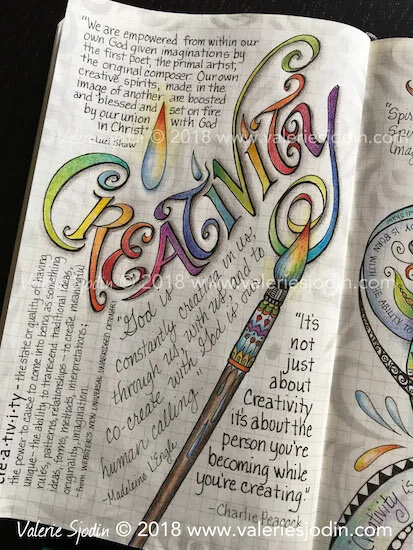 "We are empowered from within our
own God given imaginations by
the first poet, the primal artist,
the original composer. Our own
creative spirits, made in the
image of another are boosted
and blessed and set on fire
by our union with God
in Christ"
-Luci Shaw
Valerie Sjodin © 2018 www.valeriesjodin.com
CREATIVITY
Cre·a·tiv·i·ty - the state or quality of having
the power to cause to come into being as something
unique - the ability to transcend traditional ideas,
rules, patterns, relationships - to create meaningful
ideas, forms, methods, interpretations;
originality, imagination...
-from WEBSTER'S NEW UNIVERSAL UNABRIDGED DICTIONARY
© 2018 www.valeriesjodin.com
"God is
constantly creating in us,
through us, with us, and to
co-create with God is our
human calling."
-Madeleine L'Engle
"It's
not
just
about
Creativity
it's about the
person you're
becoming while
you're creating."
-Charlie Peacock
Valerie Sjodin © 2018 www.valeriesjodin.com